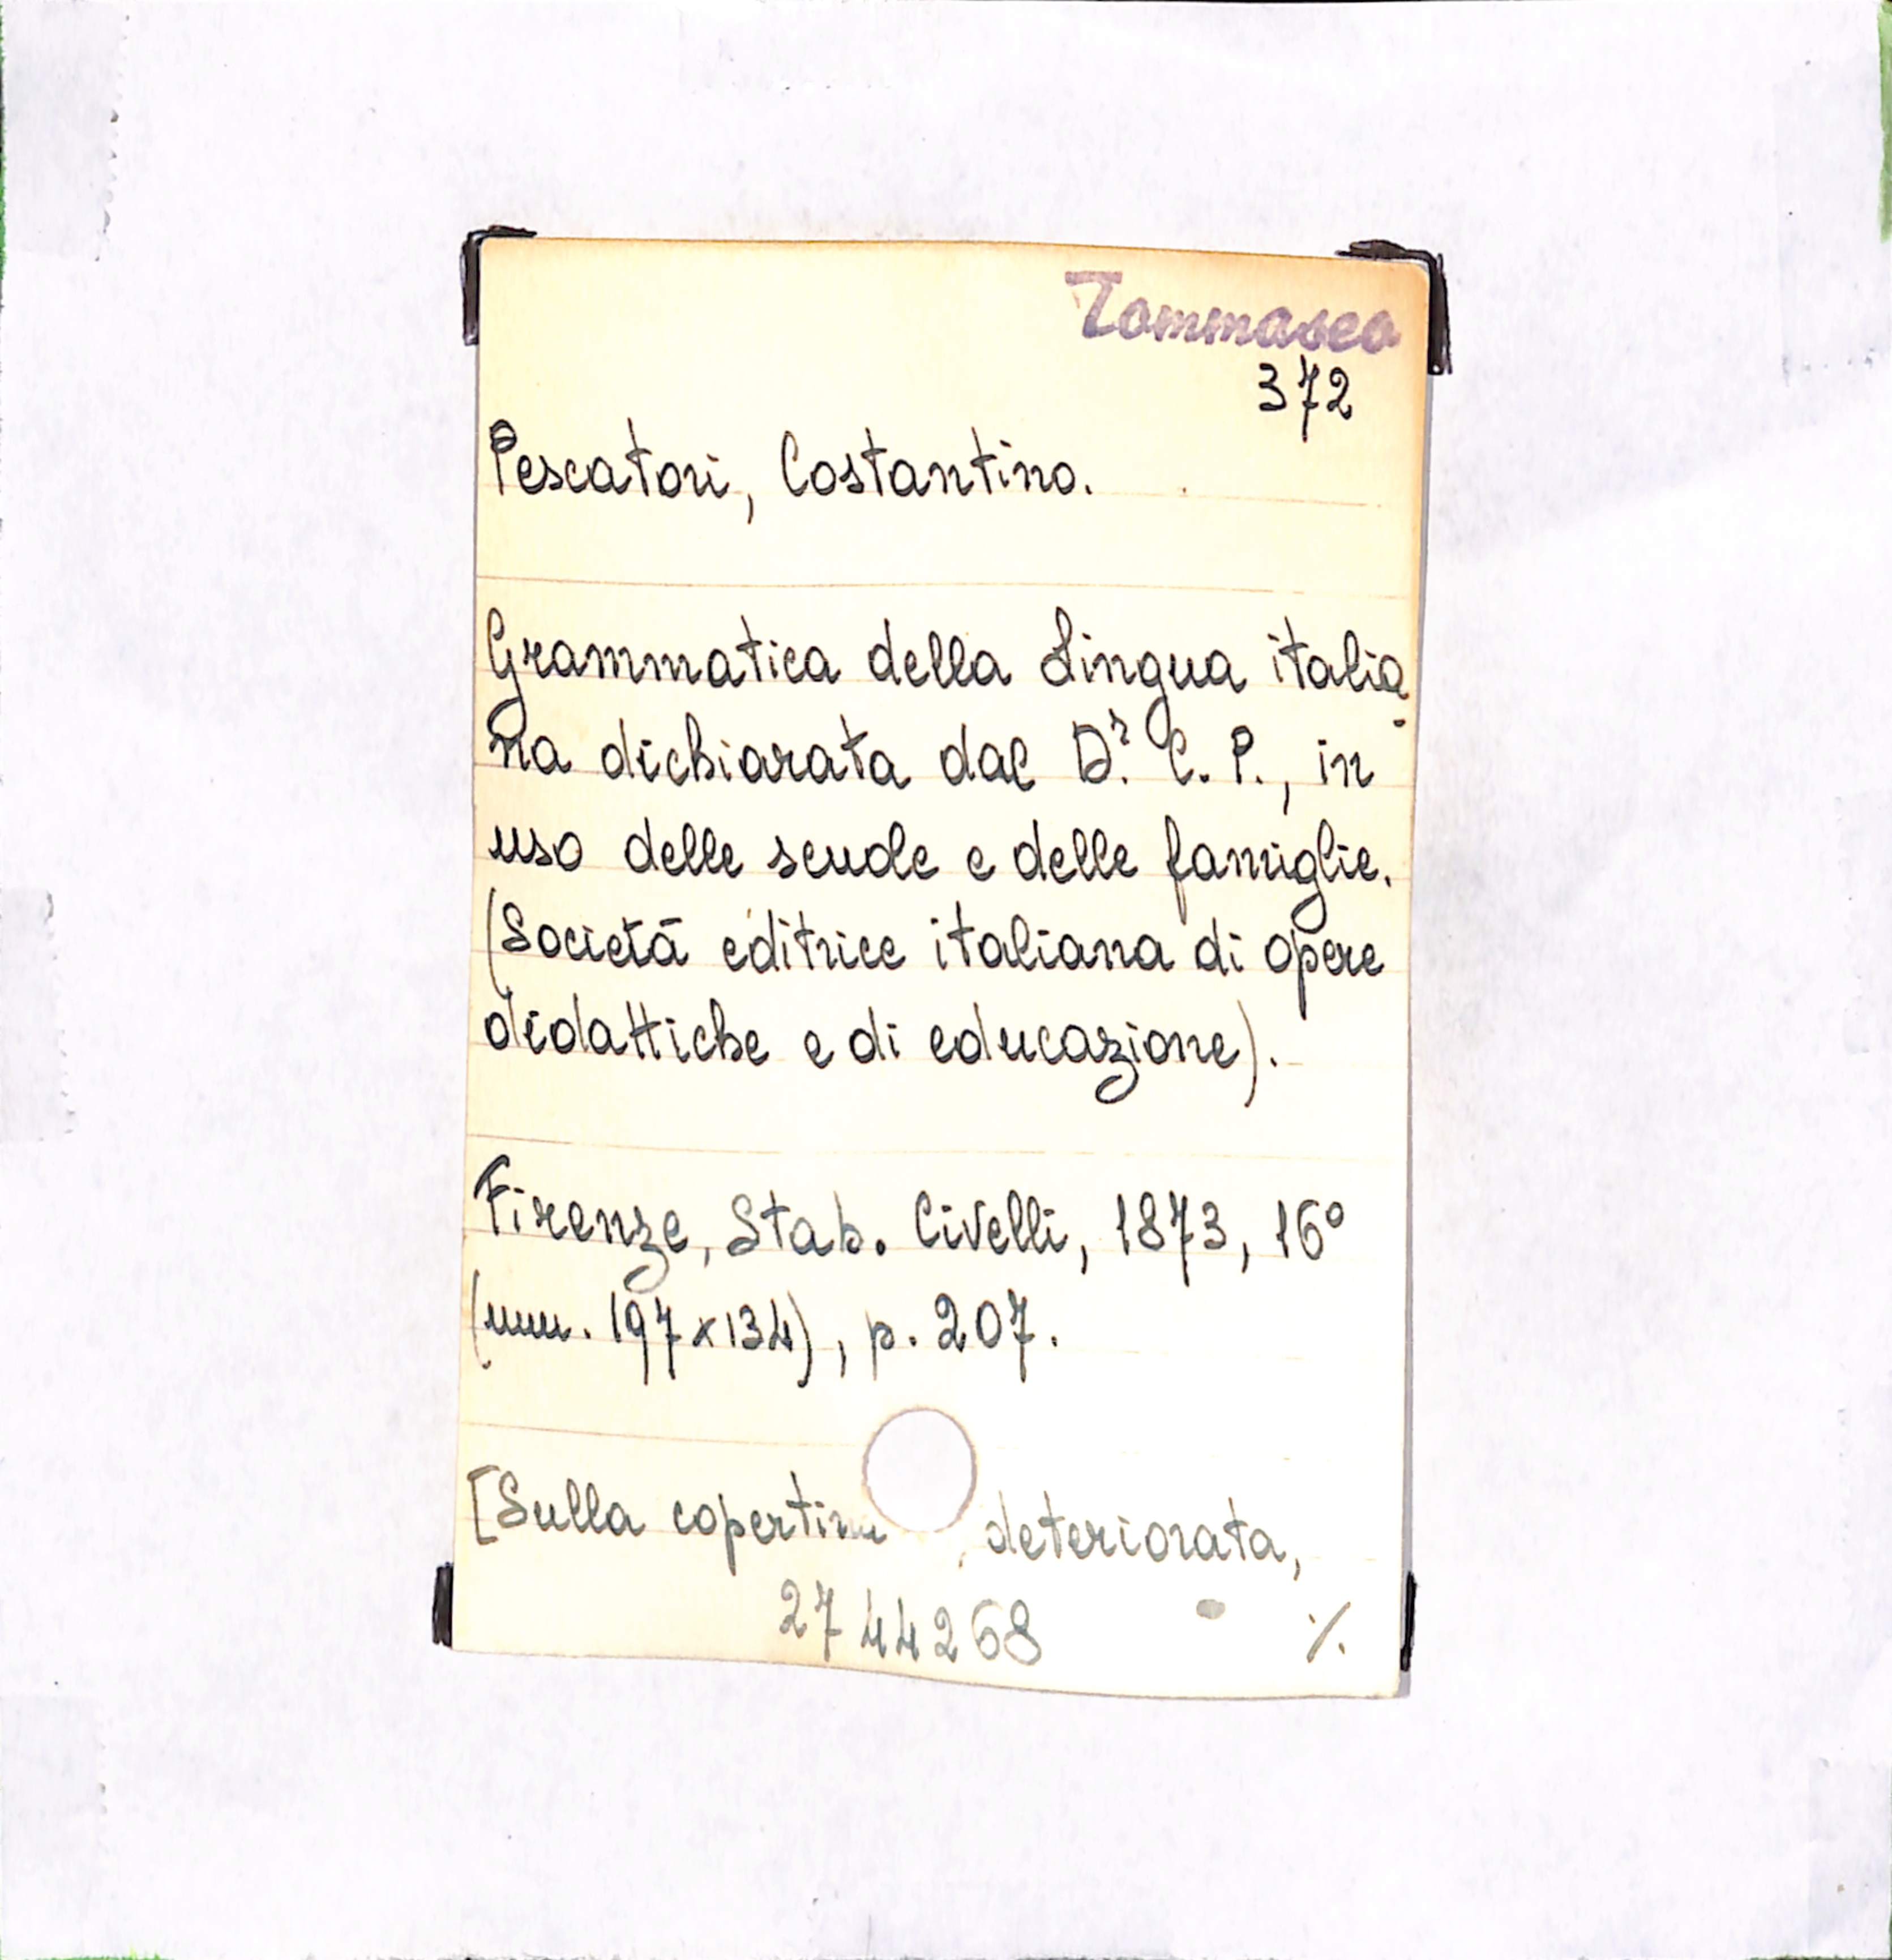 Tommaseo
372
Pescatori, Costantino.
Grammatica della Lingua italia-
na dichiarata dal Dr. C. P., in
uso delle scuole e delle famiglie.
(Società editrice italiana di opere
didattiche e di educazione).
Firenze, Stab. Civelli, 1873, 16°
(mm. 197x134), p. 207.
[Sulla copertin , deteriorata,
2744268 ./.